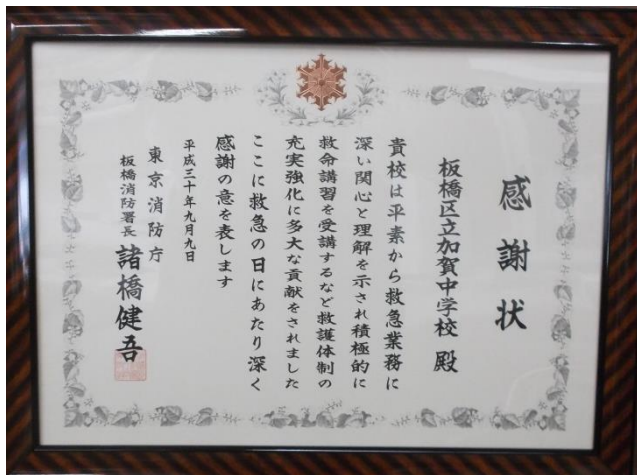 感謝状
板橋区立加賀中学校 殿
貴校は平素から救急業務に
深い関心と理解を示され積極的に
救命講習を受講するなど救護体制の
充実強化に多大な貢献をされました
ここに救急の日にあたり深く
感謝の意を表します
平成三十年九月九日
東京消防庁
板橋消防署長 諸橋健吾